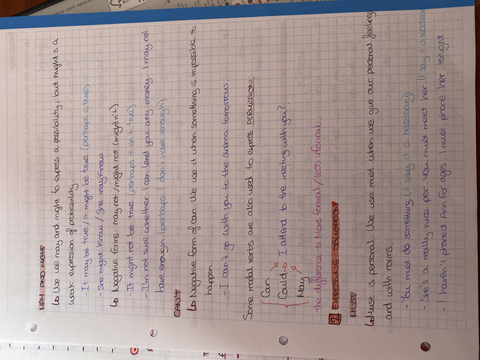 MAY AND MIGHT
↳ We use may and might to express a possibility, but might is a
weak expression of probability.
- It may be true / It might be true (perhaps is true)
- She might know / She may know
↳ Negative forms: may not / might not (mightn't)
- It might not be true (perhaps it isn't true)
- I'm not sure whether I can lend you any money. I may not
have enough (perhaps I don't have enough)
CAN'T
↳ Negative form of can. We use it when something is impossible to
happen.
- I can't go with you to the cinema tomorrow.
Some modal verbs are also used to express PERMISSION.
Can
Could I attend to the meeting with you?
May
the difference is more formal / less formal
2 EXPRESSING
MUST
↳ Must is personal. We use must when we give our personal feelings
and with norms.
- You must do something (I say it is necessary)
- She's a really nice per. You must meet her (I say it is necessary
- I haven't phoned Ann for ages. I must phone her tonight